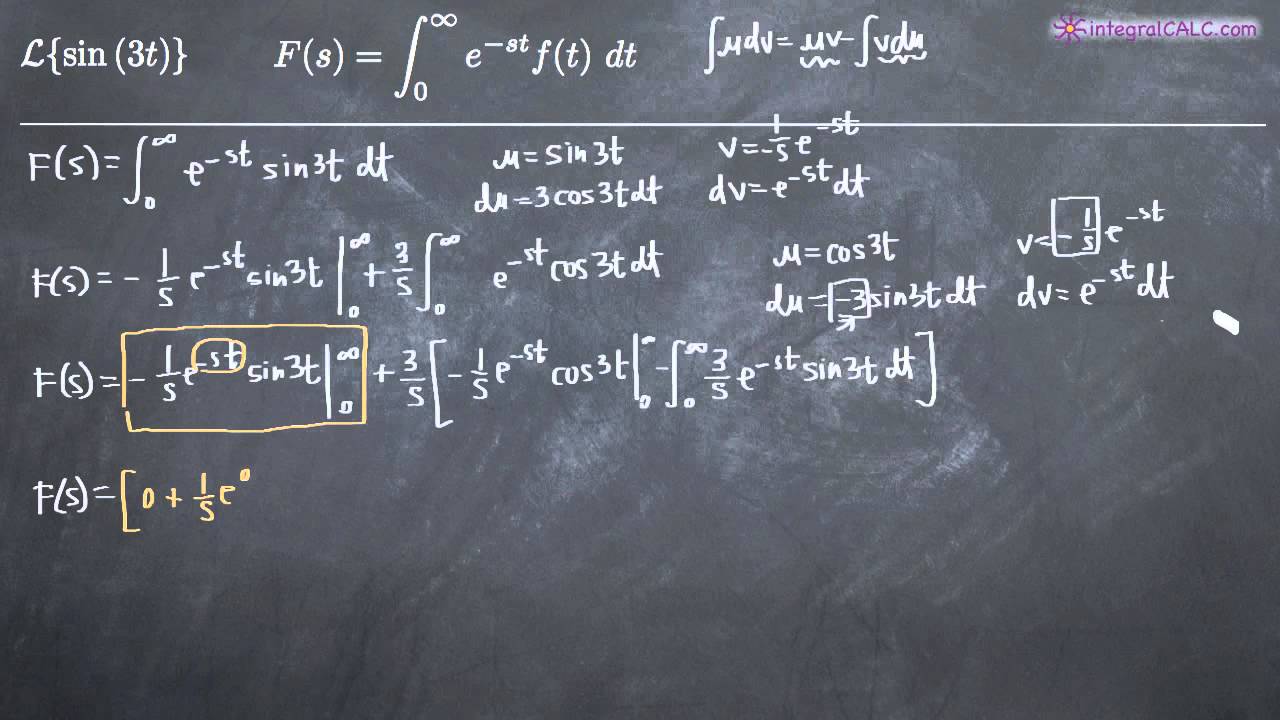 ℒ{sin (3t)} F(s) = ∫₀^∞ e^{−st} f(t) dt ∫μdv = μv − ∫vdμ integralCALC.com
F(s) = ∫₀^∞ e^{−st} sin3t dt μ = sin3t v = −1/s e^{−st}
dμ = 3cos3tdt dv = e^{−st}dt
F(s) = − 1/s e^{−st} sin3t |₀^∞ + 3/s ∫₀^∞ e^{−st} cos3tdt μ = cos3t v = −1/s e^{−st}
dμ = −3sin3tdt dv = e^{−st}dt
F(s) = − 1/s e^{−st} sin3t |₀^∞ + 3/s [ − 1/s e^{−st} cos3t |₀^∞ − ∫₀^∞ 3/s e^{−st} sin3t dt ]
F(s) = [ 0 + 1/s e⁰